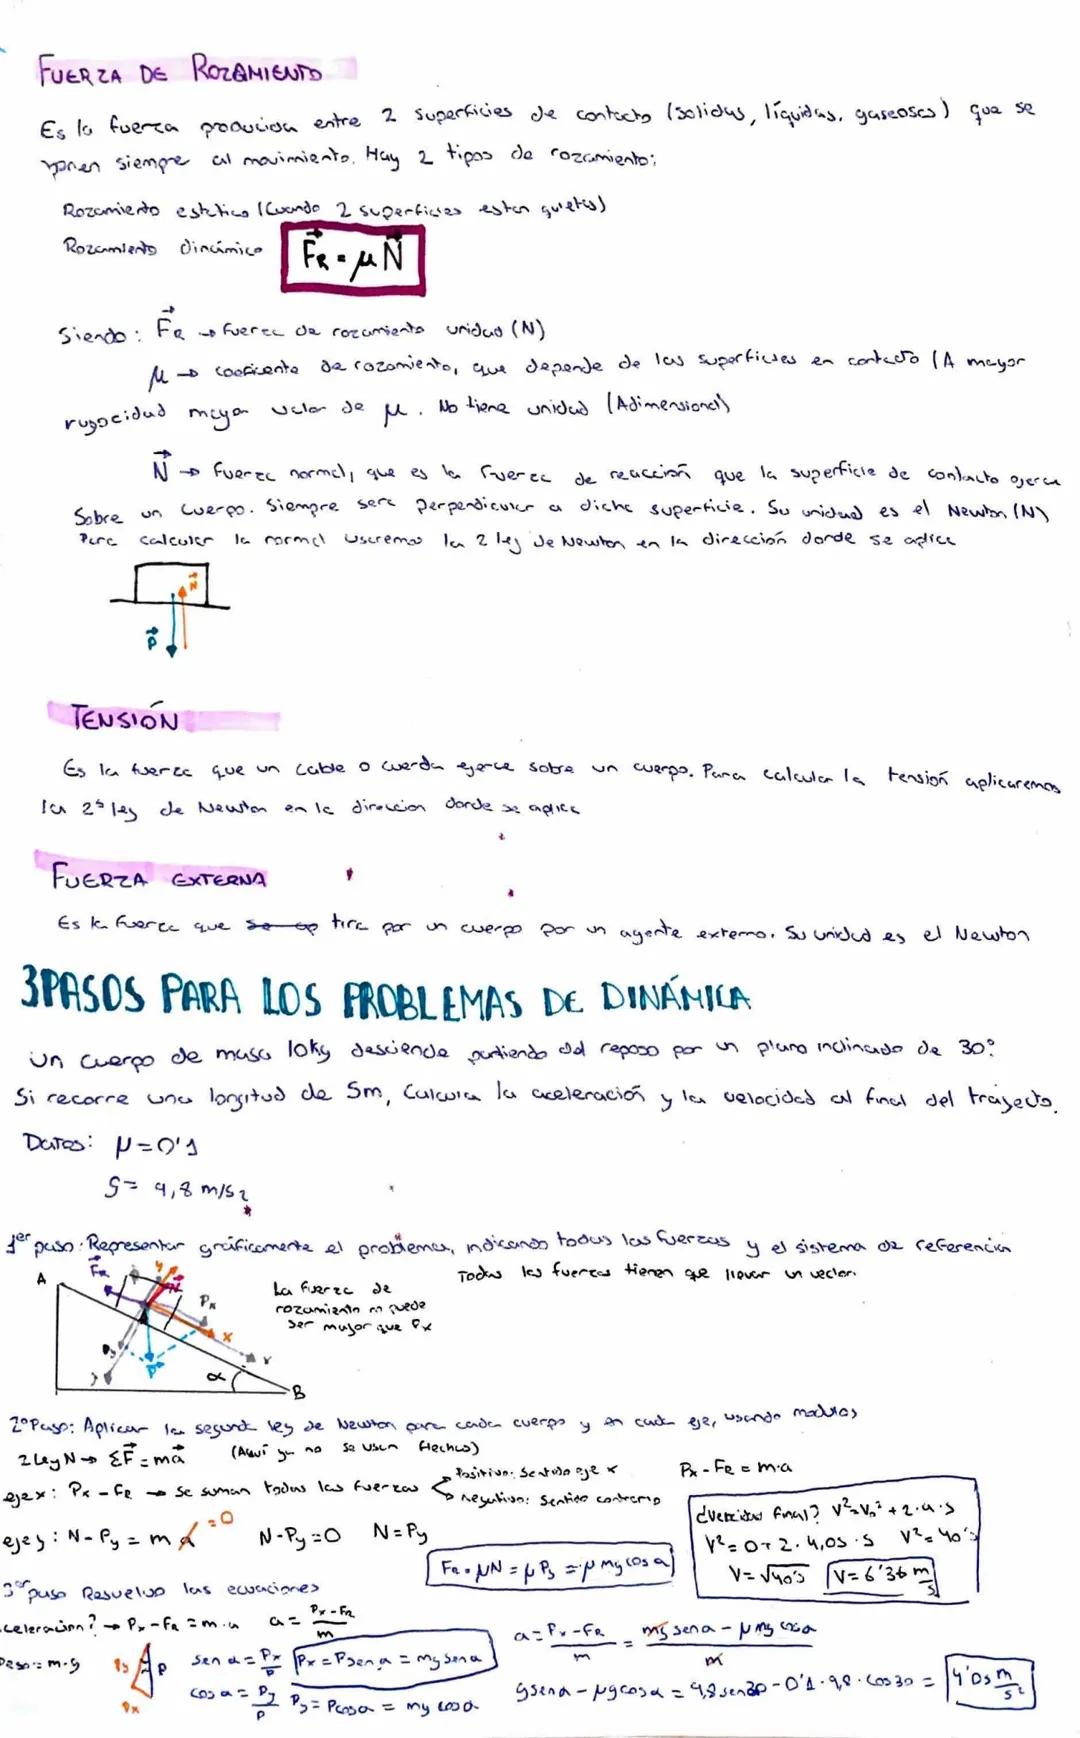 FUERZA DE ROZAMIENTO
Es la fuerza producida entre 2 superficies de contacto (solidas, líquidas, gaseosas) que se
ponen siempre al movimiento. Hay 2 tipos de rozamiento:
Rozamiento estetico (Cuando 2 superficies estan quietas)
Rozamiento dinámico
F⃗R = μ N⃗
Siendo: F⃗R → fuerza de rozamiento unidad (N)
μ → coeficiente de rozamiento, que depende de las superficies en contacto (A mayor
rugocidad mayor valor de μ. No tiene unidad (Adimensional)
N⃗ → fuerza normal, que es la fuerza de reacción que la superficie de contacto ejerce
Sobre un cuerpo. Siempre sera perpendicular a dicha superficie. Su unidad es el Newton (N)
Para calcular la normal usaremos la 2 ley de Newton en la dirección donde se aplica
N⃗
P⃗
TENSIÓN
Es la fuerza que un cable o cuerda ejerce sobre un cuerpo. Para calcular la tensión aplicaremos
la 2ª ley de Newton en la direccion donde se aplica
FUERZA EXTERNA
Es la fuerza que se ap tira por un cuerpo por un agente externo. Su unidad es el Newton
3 PASOS PARA LOS PROBLEMAS DE DINÁMICA
Un cuerpo de masa 10kg desciende partiendo del reposo por un plano inclinado de 30º
Si recorre una longitud de 5m, Calcula la aceleración y la velocidad al final del trayecto.
Datos: μ=0'1
g= 9,8 m/s2
1er paso: Representar gráficamente el problema, indicando todas las fuerzas y el sistema de referencia
Todas las fuerzas tienen que llevar un vector.
La fuerza de
rozamiento no puede
ser mayor que Px
A F⃗R y N⃗ Px x Py P⃗ y x α B
2º Paso: Aplicar la segunda ley de Newton para cada cuerpo y en cada eje, usando modulos
2 Ley N → ΣF⃗ = ma⃗ (Aquí ya no se usan flechas)
eje x: Px - FR → se suman todas las fuerzas
Positivo: Sentido eje x
negativo: Sentido contrario
Px - FR = m·a
eje y: N - Py = m a =0 N-Py=0 N=Py
FR = μN = μ Py = μ mg cos α
¿Velocidad final? V²=V₀² + 2·a·s
V²= 0 + 2·4,05·5 V²=40'5
V=√40'5 V=6'36 m/s
3er paso Resuelvo las ecuaciones
celeración? → Px - FR = m·a a = Px-FR/m
Peso = m·g
Py P Px
sen α = Px/P Px = P sen α = mg sen α
cos α = Py/P Py = P cos α = mg cos α
a = Px - FR/m = mg sen α - μ mg cos α/m
g sen α - μ g cos α = 9,8 sen 30 - 0'1 · 9,8 · cos 30 = 4'05 m/s²